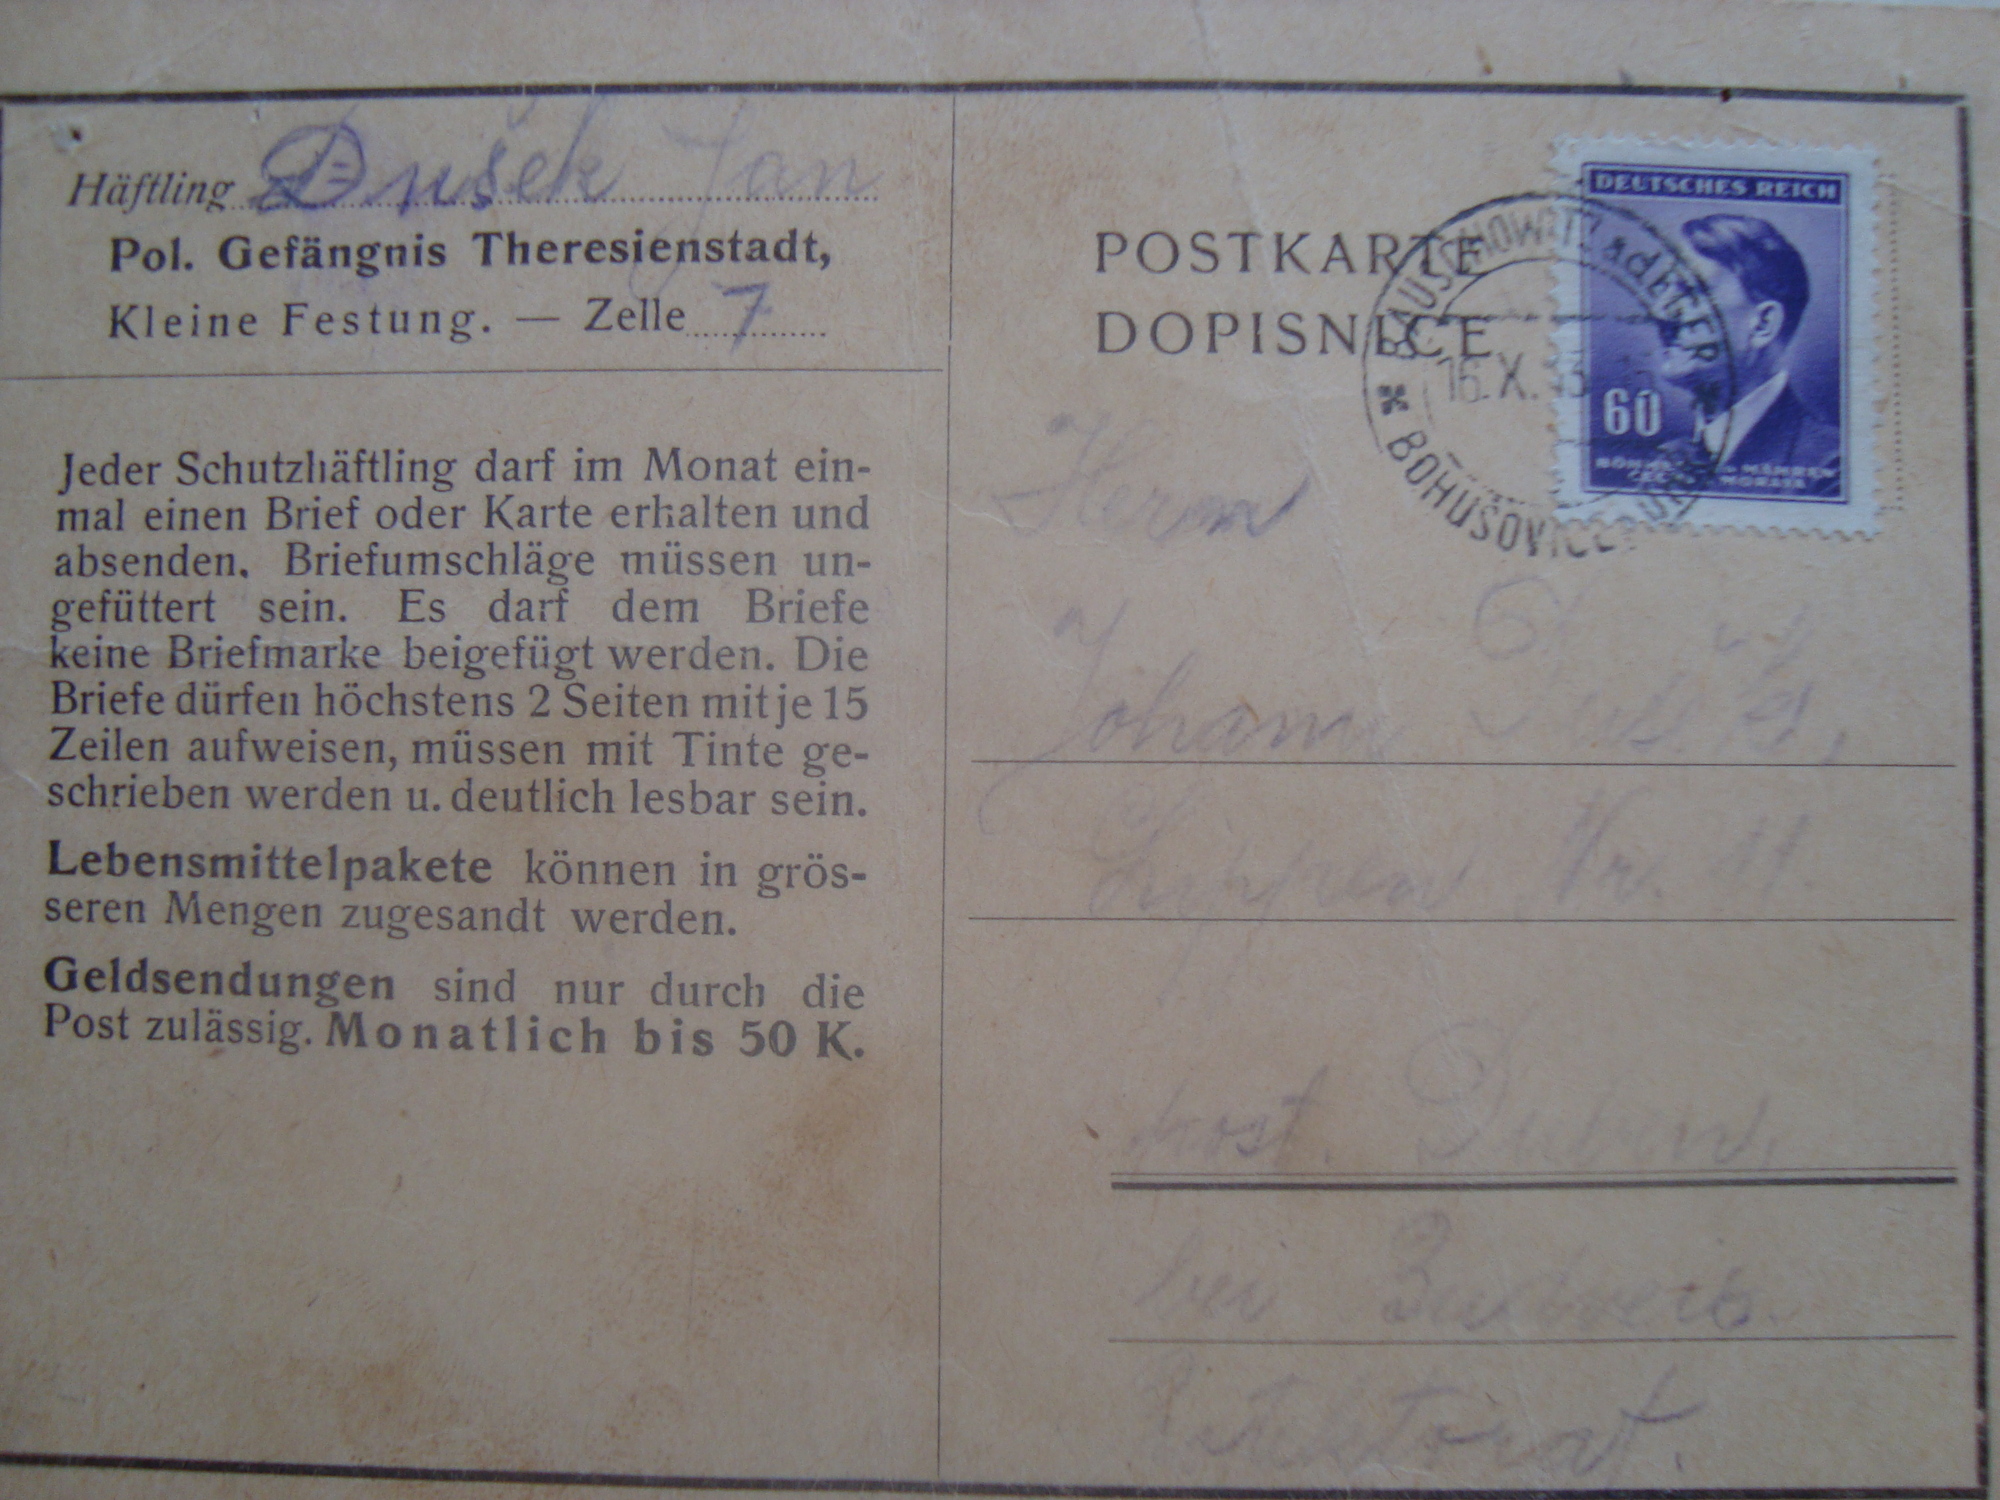 Häftling Dušek Jan
Pol. Gefängnis Theresienstadt,
Kleine Festung. — Zelle 7
Jeder Schutzhäftling darf im Monat ein-
mal einen Brief oder Karte erhalten und
absenden. Briefumschläge müssen un-
gefüttert sein. Es darf dem Briefe
keine Briefmarke beigefügt werden. Die
Briefe dürfen höchstens 2 Seiten mit je 15
Zeilen aufweisen, müssen mit Tinte ge-
schrieben werden u. deutlich lesbar sein.
Lebensmittelpakete können in grös-
seren Mengen zugesandt werden.
Geldsendungen sind nur durch die
Post zulässig. Monatlich bis 50 K.
POSTKARTE
DOPISNICE
DEUTSCHES REICH
60
BÖHMEN UND MÄHREN
ČECHY A MORAVA
BAUSCHOWITZ a.d. EGER
16. X. 43
BOHUŠOVICE
Herrn
Johann Dušek,
Nr. 11.
post.
bei
Protektorat.